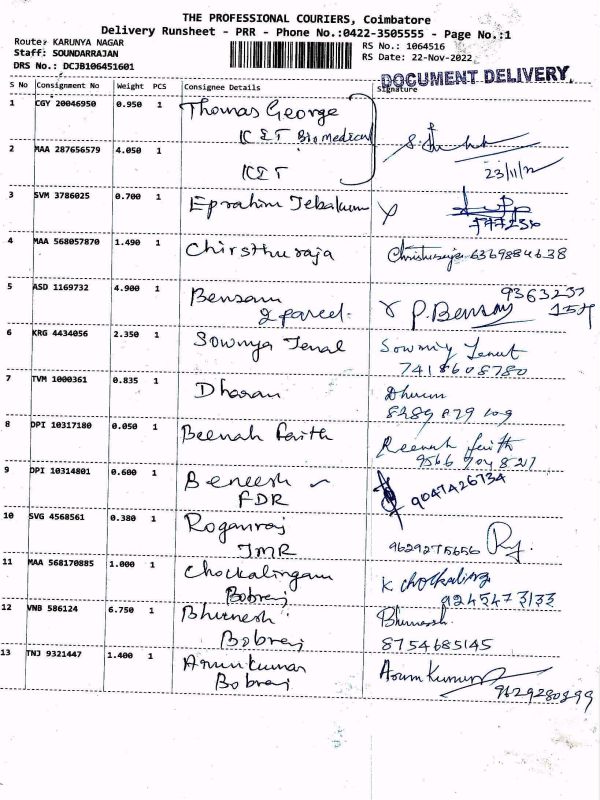 THE PROFESSIONAL COURIERS, Coimbatore
Delivery Runsheet - PRR - Phone No.:0422-3505555 - Page No.:1
Route: KARUNYA NAGAR
Staff: SOUNDARRAJAN
DRS No.: DCJB106451601
RS No.: 1064516
RS Date: 22-Nov-2022
DOCUMENT DELIVERY.
S No Consignment No Weight PCS Consignee Details Signature
1 CGY 20046950 0.950 1 Thomas George
ICET Biomedical
2 MAA 287656579 4.050 1
ICET
23/11/22
3 SVM 3786025 0.700 1 Eprahim Jebakum
4 MAA 568057870 1.490 1 Chirsthuraja Christuraja 6369884638
5 ASD 1169732 4.900 1 Bensam P. Bensam
2 parcel.
6 KRG 4434056 2.350 1 Sowmya Jenal
7418608780
7 TVM 1000361 0.835 1 Dharan
8289 879 109
8 DPI 10317180 0.050 1 Beenah faith Beenah faith
9566 904 827
9 DPI 10314801 0.600 1 Beneesh 9047426734
FDR
10 SVG 4568561 0.380 1 Roganraj
JMR 9629275656
11 MAA 568170885 1.000 1 Chockalingam K chockalinga
Bobraj 9245473133
12 VNB 586124 6.750 1 Bhuvnesh
Bobraj 8754685145
13 TNJ 9321447 1.400 1 Arunkumar Arun Kumar
Bobraj 9629280899